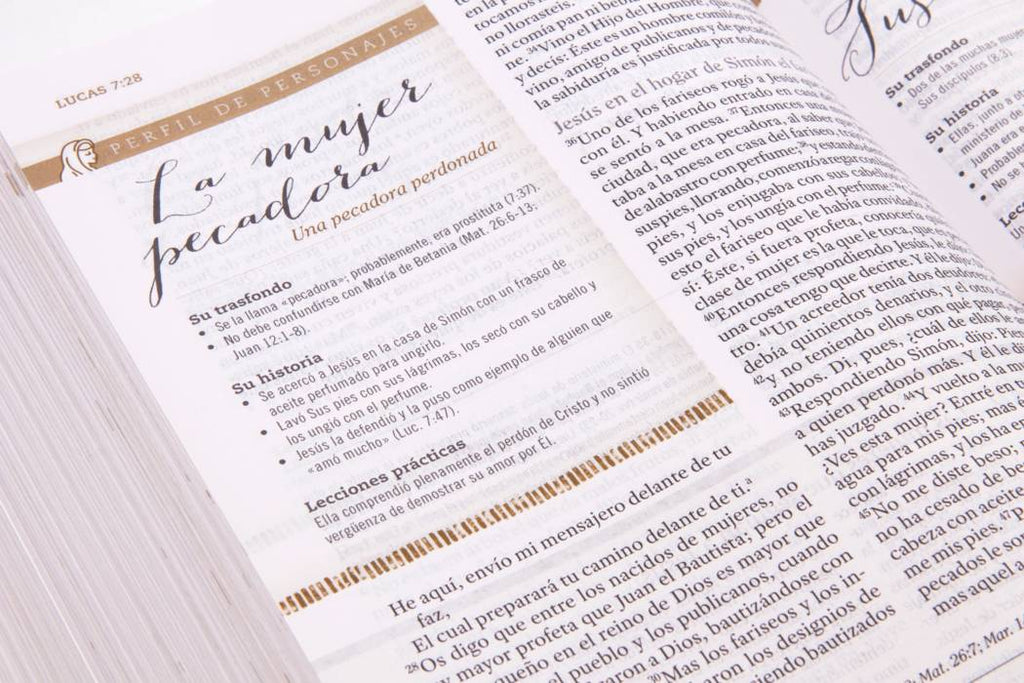 LUCAS 7:28
PERFIL DE PERSONAJES
La mujer
pecadora
Una pecadora perdonada
Su trasfondo
• Se la llama «pecadora»; probablemente, era prostituta (7:37).
• No debe confundirse con María de Betania (Mat. 26:6-13;
Juan 12:1-8).
Su historia
• Se acercó a Jesús en la casa de Simón con un frasco de
aceite perfumado para ungirlo.
• Lavó Sus pies con sus lágrimas, los secó con su cabello y
los ungió con el perfume.
• Jesús la defendió y la puso como ejemplo de alguien que
«amó mucho» (Luc. 7:47).
Lecciones prácticas
Ella comprendió plenamente el perdón de Cristo y no sintió
vergüenza de demostrar su amor por Él.
He aquí, envío mi mensajero delante de tu
faz,
El cual preparará tu camino delante de ti.ª
28Os digo que entre los nacidos de mujeres, no
y mayor profeta que Juan el Bautista; pero el
queño en el reino de Dios es mayor que
el pueblo y los publicanos, cuando
aron a Dios, bautizándose con
30Mas los fariseos y los in-
aron los designios de
iendo bautizados
en la p
tocamos
no llorasteis.
ni comía pan ni bebí
ne. 34Vino el Hijo del Hom
y decís: Éste es un hombre comilón
vino, amigo de publicanos y de pecado
la sabiduría es justificada por todos
Jesús en el hogar de Simón el
36Uno de los fariseos rogó a Jesús
con él. Y habiendo entrado en casa
se sentó a la mesa. 37Entonces una
ciudad, que era pecadora, al saber
taba a la mesa en casa del fariseo, tra
de alabastro con perfume; 38y estando
sus pies, llorando, comenzó a regar con
pies, y los enjugaba con sus cabello
sus pies, y los ungía con el perfume.
esto el fariseo que le había convidado
sí: Éste, si fuera profeta, conocería
clase de mujer es la que le toca, que e
40Entonces respondiendo Jesús, le di
una cosa tengo que decirte. Y él le di
tro. 41Un acreedor tenía dos deudor
debía quinientos denarios, y el otro
42y no teniendo ellos con qué pagar,
ambos. Di, pues, ¿cuál de ellos le
43Respondiendo Simón, dijo: Pien
a quien perdonó más. Y él le di
has juzgado. 44Y vuelto a la m
¿Ves esta mujer? Entré en tu
agua para mis pies; mas é
con lágrimas, y los ha en
45No me diste beso;
no ha cesado de be
cabeza con aceite
me mis pies. 47P
pecados le so
mas aquel a
Mat. 26:7; Mar. 1
Jus
Su trasfondo
• Dos de las muchas muje
• Sus discípulos (8:3).
Su historia
• Ellas, junto a ot
ministerio de
• Juana era
• Probable
• No se
Lec